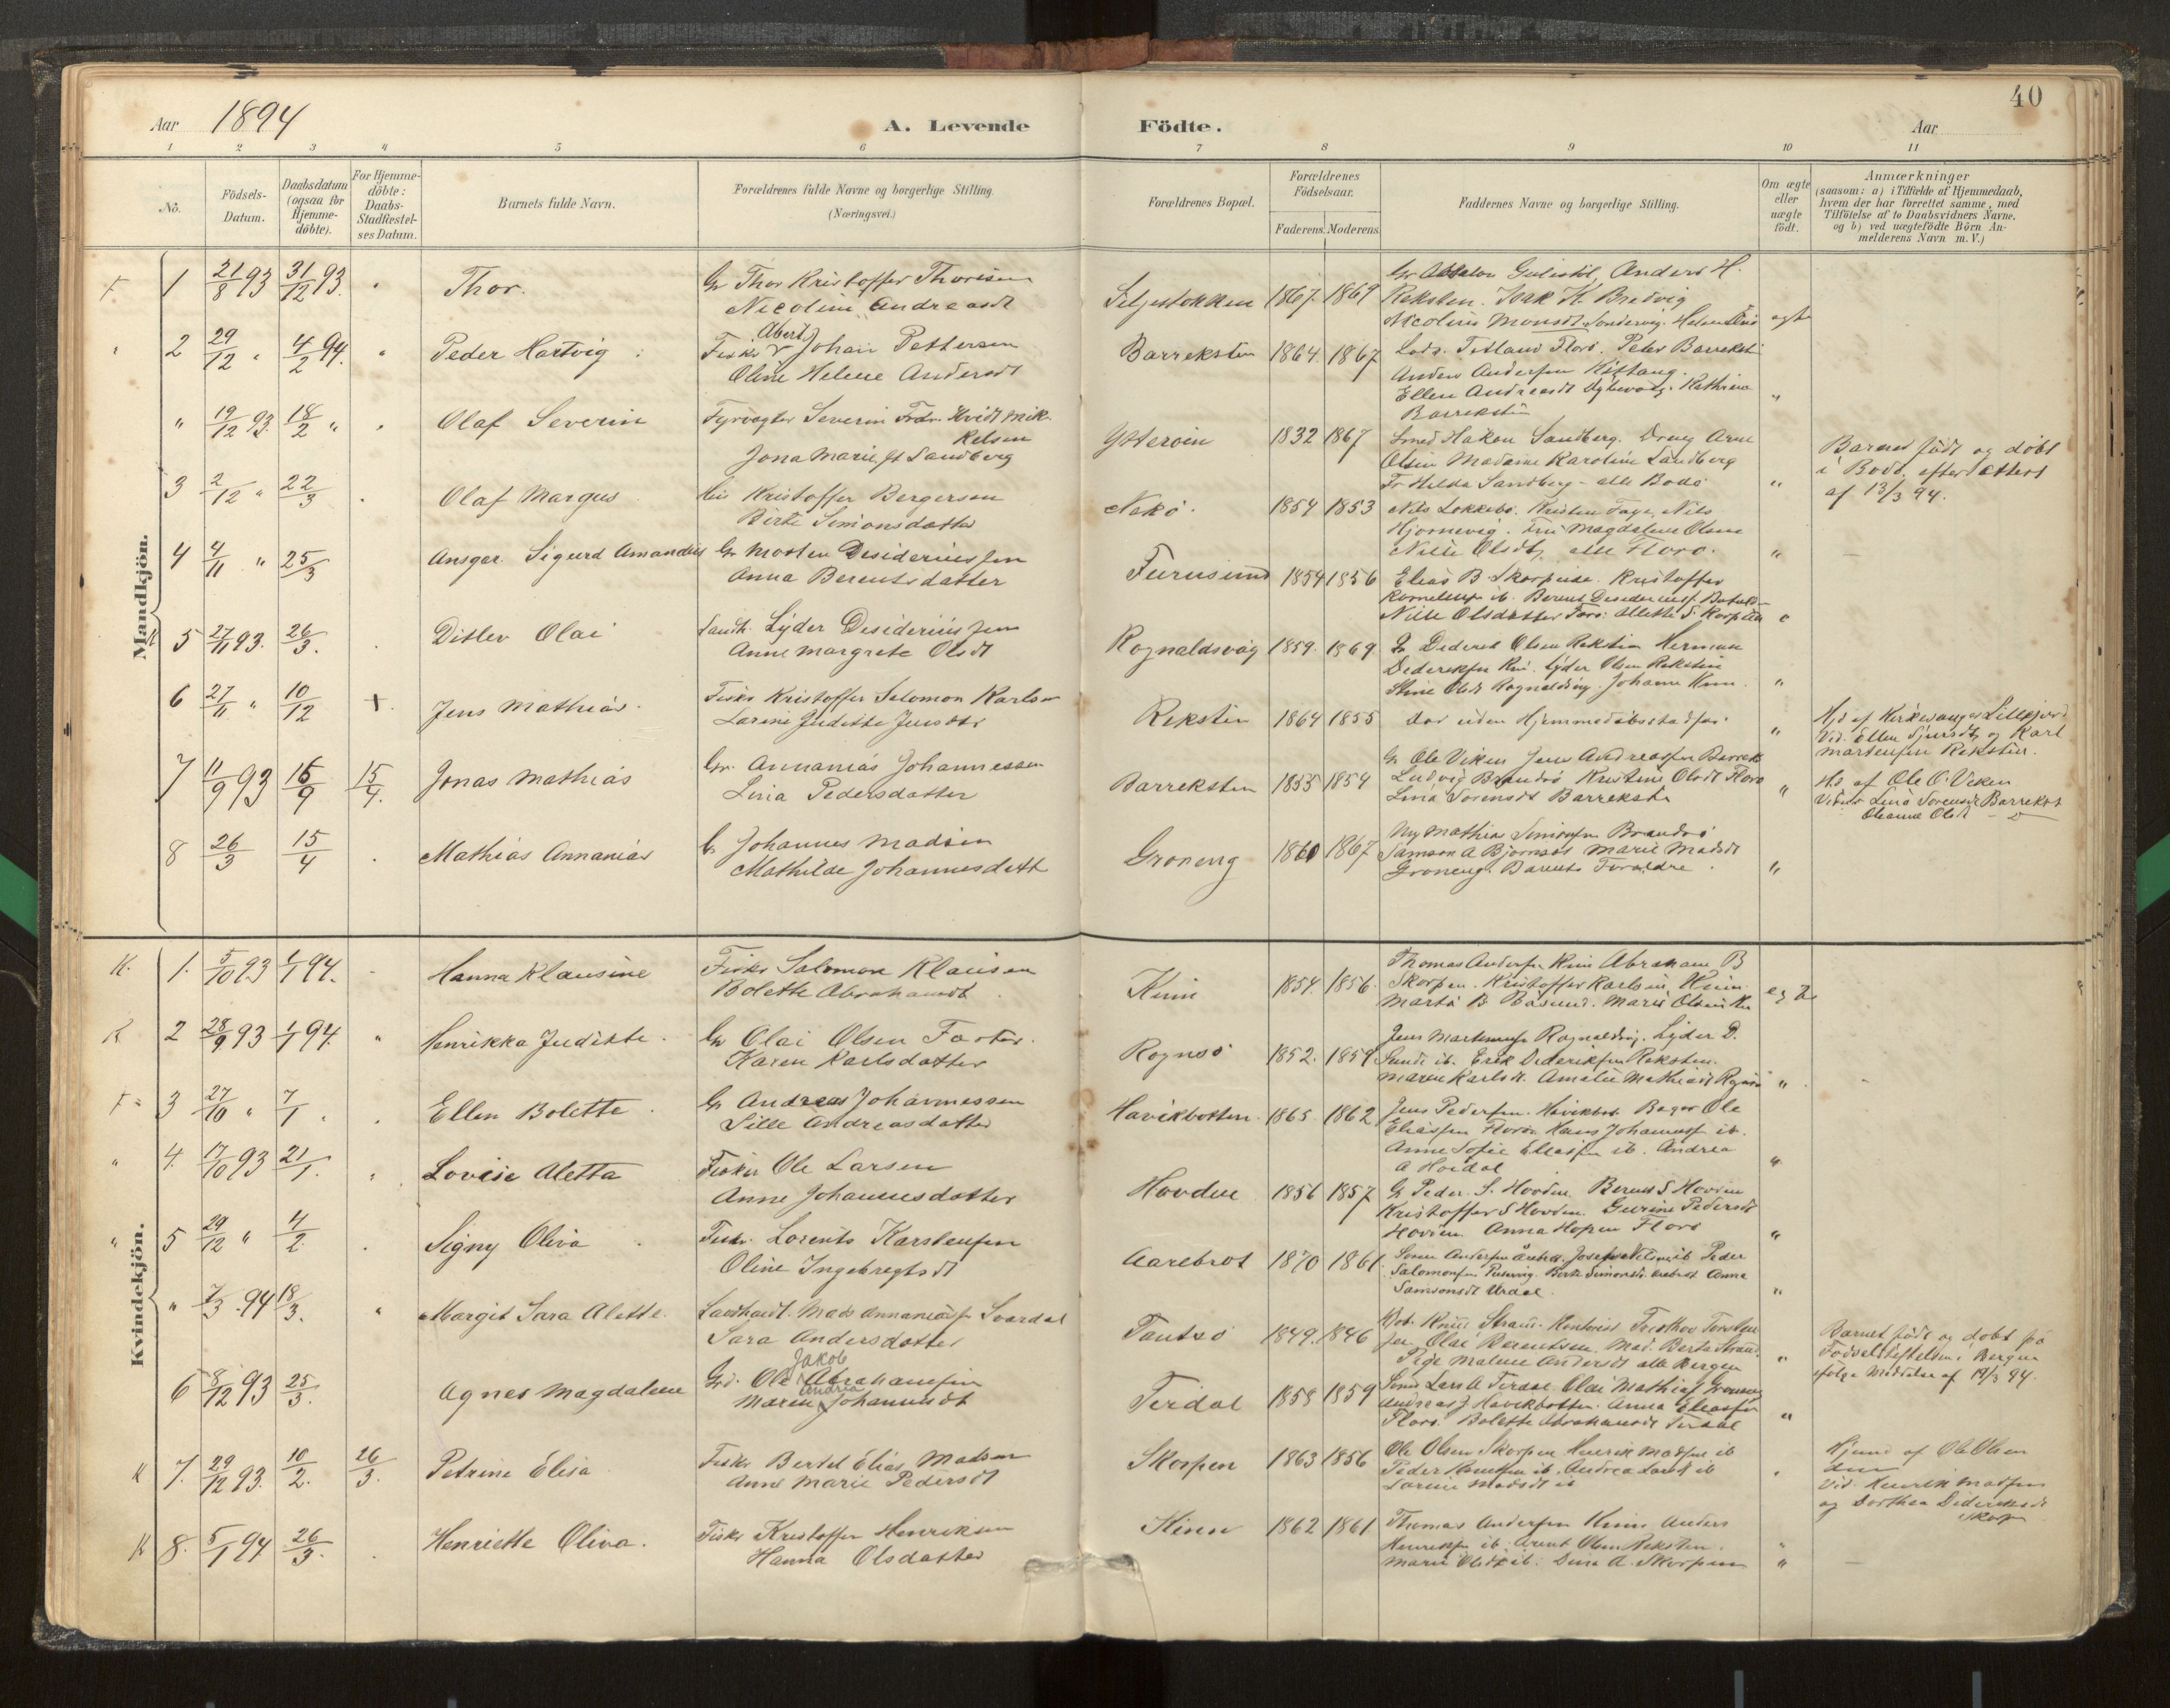 40
Aar 1894 A. Levende Födte. Aar
1 2 3 4 5 6 7 8 9 10 11
No. Födsels-Datum. Daabsdatum (ogsaa for Hjemme-döbte). For Hjemme-döbte: Daabs-Stadfæstel-ses Datum. Barnets fulde Navn. Forældrenes fulde Navne og borgerlige Stilling. (Næringsvei.) Forældrenes Bopæl. Forældrenes Födselsaar. Faderens. Moderens. Faddernes Navne og borgerlige Stilling. Om ægte eller uægte födt. Anmærkninger (saasom: a) i Tilfælde af Hjemmedaab, hvem der har forrettet samme, med Tilföielse af to Daabsvidners Navne. og b) ved uægtefödte Börn An-melderens Navn m. V.)
Mandkjön.
F 1 21/8 93 31/12 93. Thor. Gr Thor Kristoffer Thorsen
Nicoline Andreasdt
Seljestokken 1867 1869 Gr Absalon Anders H.
Reksten. Isak K. Bredvig
Nicoline Monsdt ægte
2 29/12 " 4/2 94. " Peder Hartvig Fisker Abert Johan Pettersen
Oline Helene Andersdt
Barreksten 1864. 1867 Lods. Tetland Florö. Peter Barrekst
Anders Andersen Kittang.
Ellen Andreasdt Kathrine
Barreksten "
" 19/12 93 18/2 " Olaf Severin Fyrvogter Severin Fredr. Hvidt Mik-
kelsen
Jona Marie f. Sandberg
Ytteröin 1832 1867 Smed Hakon Sandberg. Dreng Arne
Olsen Madame Karoline Sandberg
Fr Hilda Sandberg - alle Bodö "
Barnet födt og döbt
i Bodö efter Attest
af 13/3 94.
3 2/12 " 22/3 Olaf Margus Kristoffer Bergersen
Birte Simonsdatter
Nekö. 1854 1853 Nils Lökkebö. Kristen Faye, Nils
Hjornevig. Fru Magdalene Olsen
Nille Olsdt, alle Florö. "
4 4/11 " 25/3 Ansgar Sigurd Amandus Gr Morten Desideriussen
Anna Berentsdatter
Furusund 1854 1856 Elias B. Skorpen. Kristoffer
Korneliusen ib. Berent Desideriuss.
Nille Olsdatter Florö. Alette S. Skorpen "
K 5 27/11 93. 26/3. Ditlev Olai Landh. Lyder Desideriussen
Anne Margrete Olsdt
Rognaldsvåg 1859. 1869 Gr Dederek Olsen Reksten Herman
Dedereksen Lyder Olsen Reksten
Stine Olsdt Rognaldsvåg. Johanne Kinn. "
6 27/11 " 10/12 + Jens Mathias. Fisker Kristoffer Salomon Karlsen
Larine Judithe Jensdtr
Reksten 1864 1855 Död uden Hjemmedaabsstadf. "
Hjd af Kirkesanger Lillefjord
Vid. Ellen Sjursdt, og Karl
Martensen Reksten.
7 11/9 93 15/9 15/4. Jonas Mathias Gr. Annanias Johannessen
Lina Pedersdatter
Barreksten 1855 1854 Gr Ole Viken Jens Andreassen Barrek
Ludvig Brandsö Kristine Olsdt Florö
Lina Sörensdt Barreksten "
Hd af Ole O. Viken
Vidner Lina Sörensdt Barrekst
Oleanne Olsdt
8 26/3 15/4 Mathias Annanias G Johannes Madsen
Mathilde Johannesdatt
Groneng 1860 1867 Ung. Mathias Simonsen Brandsö
Samson A Björnset Marie Madsdt
Groneng. Barnets Forældre. "
Kvindekjön.
K. 1. 5/10 93 1/1 94. Hanna Klausine Fisker Salomon Klausen
Bolette Abrahamsdt.
Kinn 1854. 1856. Thomas Andersen Kinn Abraham B
Skorpen. Kristoffer Karlsen, Kinn.
Marta B Båsund. Marie Olsen Kinn ægte
K 2 28/9 93 1/1 94. " Henrikka Judithe Gr Olai Olsen
Karen Karlsdatter
Rognsö 1852. 1859 Jens Martinusen Rognaldsvåg. Lyder D.
Sunde ib. Erik Dideriksen Reksten.
Maren Karlsdt. Amalie Mathiasdt Rognsö "
F 3 27/10 " 7/1 Ellen Bolette Gr Andreas Johannessen
Sille Andreasdatter
Havikbotten 1865 1862 Jens Pedersen. Havikbot. Bager Ole
Eliassen Florö. Hans Johannesen ib.
Anne Sofie Eliassen ib. Andrea
A Hovdal "
" 4. 17/10 93 21/1. Lovise Aletta Fisker Ole Larsen
Anne Johannesdatter
Hovden 1856 1857 G Peder S. Hovden. Berent S Hovden
Kristoffer S Hovden. Gurine Pedersdt
Hovden. Anna Hopen Florö "
" 5 29/12 " 4/2 Signy Oliva Fisker. Lorents Karstensen
Oline Ingebregtsdt
Aarebrot 1870 1861 Simon Andersen Årebrot, Josef Nilsen ib Peder
Salomonsen Berte Simonsdt. Årebrot Anna
Samsonsdt Årdal. "
" 7/3 94 18/3. " Margit Sara Alette. Landhandl. Mads Annaniassen Svardal
Sara Andersdatter
Tansö 1849. 1846 Knud Strand. Kontorist Fridthov Torsten-
sen, Olai Berentsen. Mad. Berta Strand.
Pige Malene Andersdt alle Bergen "
Barnet födt og döbt på
Födselsstiftelsen i Bergen
ifölge Meddelelse af 19/3 94.
6 8/12 93 25/3. Agnes Magdalene Gr. Ole Jakob Abrahamsen
Maren Andrea Johannesdt
Terdal 1858 1859 Simon Lars A Terdal. Olai Mathias Groneng
Andreas J Havikbotten. Anna Eliassen
Florö. Bolette Abrahamsdt Terdal "
K 7. 29/12 93. 10/2. 26/3. Petrine Elisa Fisker Bertel Elias Madsen
Anne Marie Pedersdt
Skorpen 1863 1856 Ole Olsen Skorpen Henrik Madsen ib
Peder Knutsen ib. Andrea Larsdt ib
Larine Madsdt ib
Hjemd af Ole Olsen
Vid. Henrik Madsen
og Dorthea Dideriksdt
Skorp
K 8. 5/1 94 26/3. Henriette Oliva. Fisker Kristoffer Henriksen
Hanna Olsdatter
Kinn 1862 1861 Thomas Andersen Kinn Anders
Henriksen ib. Arent Olsen Reksten.
Marie Olsdt ib. Dina A. Skorpen "